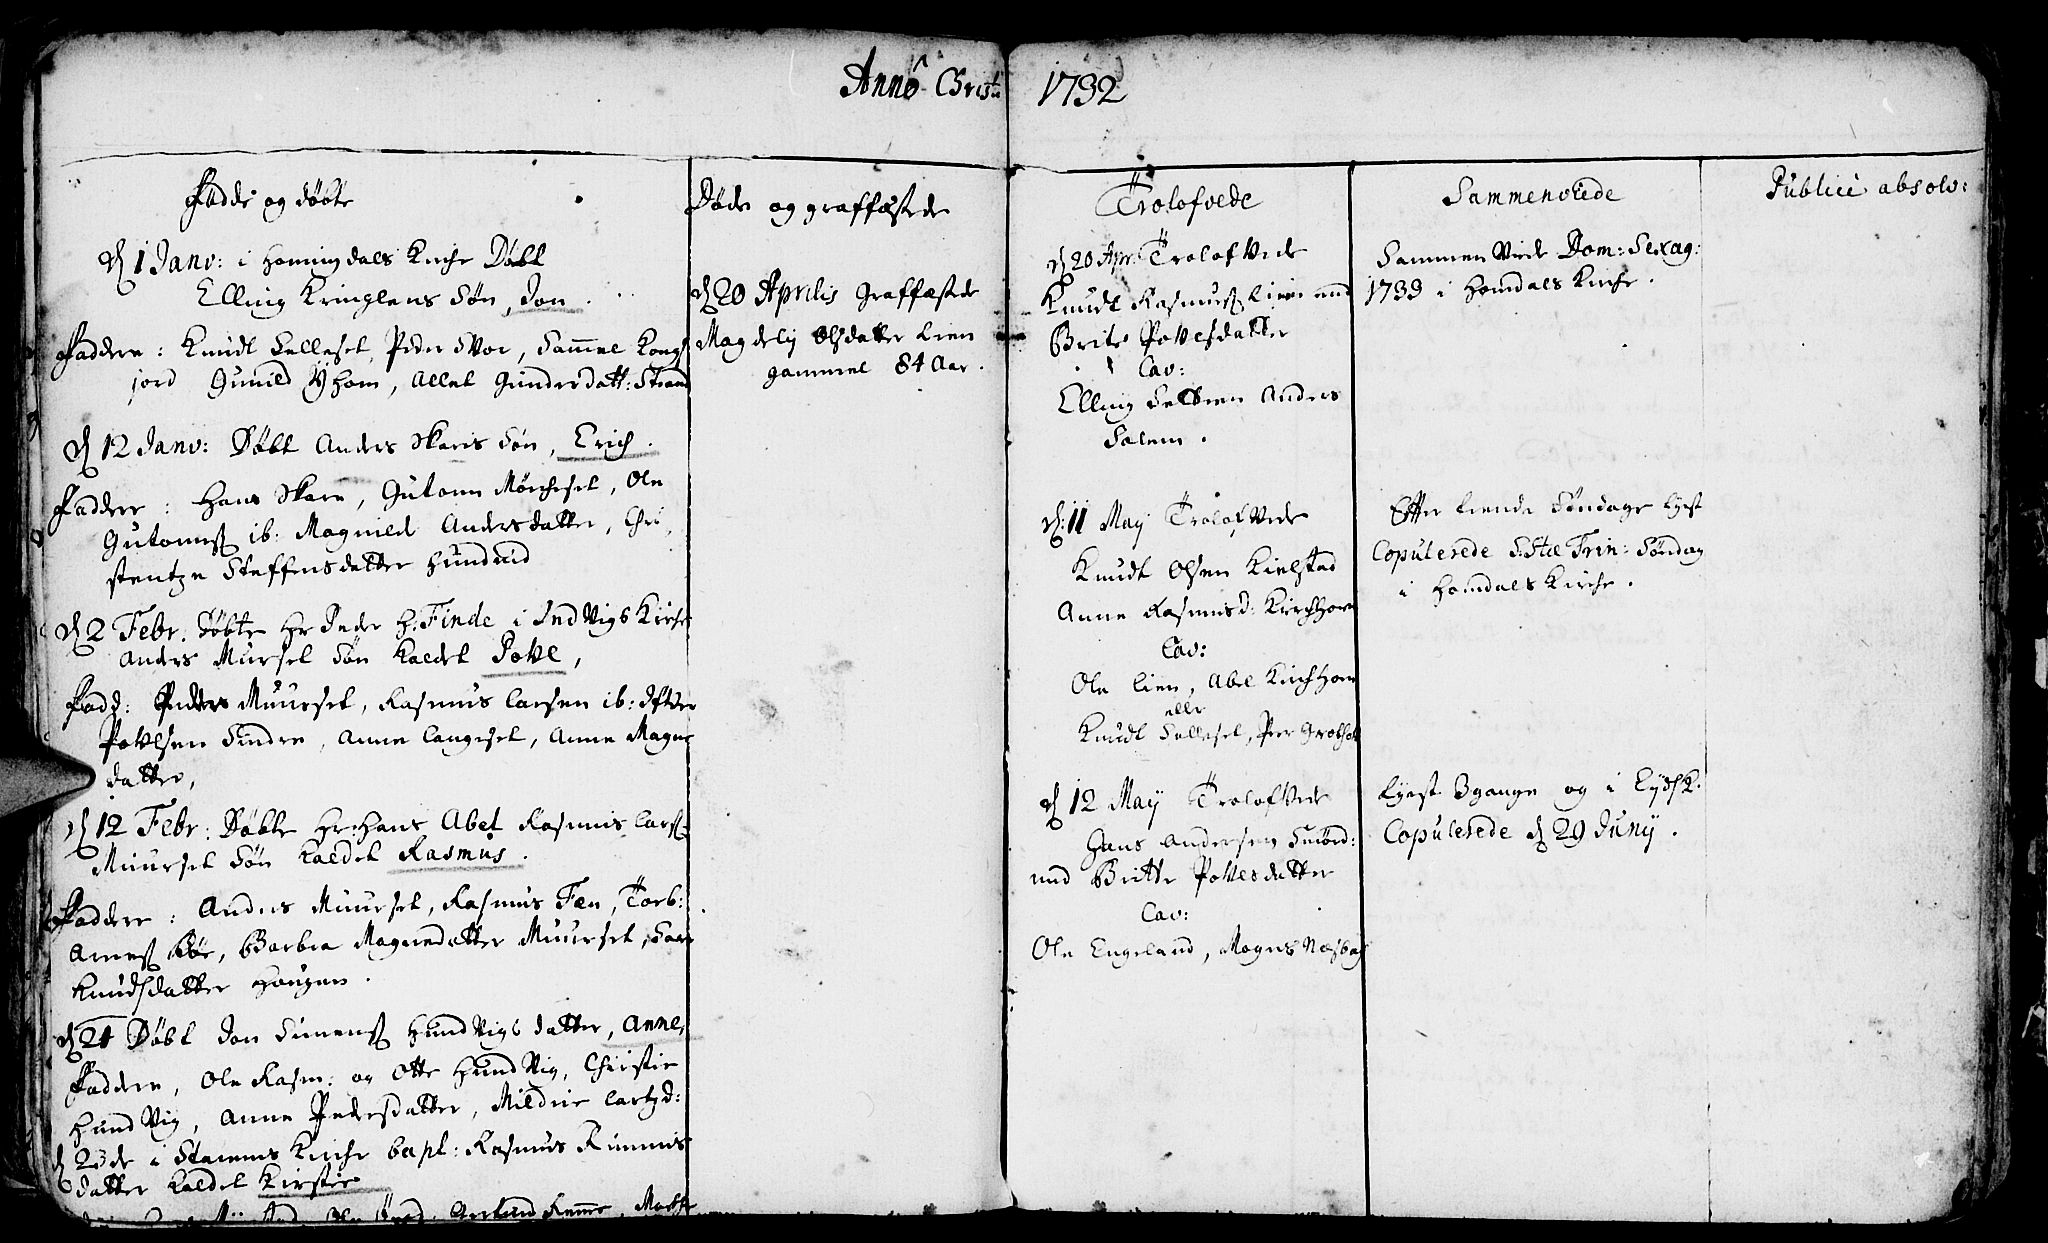 Anno Christi 1732
Fødde og døbte
d 1 Janv: i Homingdals Kirche Døbt
Elling Kringlens Søn, Jon.
Faddere: Knudt Selleset, Peder Svor, Sammel Kongs
jord Gunild Ÿhom, Allet Gunders datt: Strand
d 12 Janv: Døbt Anders Skaris Søn, Erich.
Faddere: Hans Skare, Gutorm Mørcheset, Ole
Gutormss ib: Magnild Andersdatter, Chri
stentze Steffensdatter Hundeid
d 2 Febr: Døbte Hr Peder H: Finde i IndVigs Kirche
Anders Murset Søn kaldet Povel,
Fadd: Peders Muurset, Rasmus Larsen ib:
Povelsen Sindre, Anne Langeset, Anne Magne
datter,
d 12 Febr: Døbte Hr: Hans Abet Rasmus Larss
Muurset Søn kaldet Rasmus.
Faddere: Anders Muurset, Rasmus Fæn, Torb:
Arness Bøe, Barbra Magnedatter Muurset,
Knudsdatter Hougen.
d 24 Døbt Jon Simenss HundVigs datter, Anne,
Faddere, Ole Rasm: og Otte HundVig, Christie
HundVig, Anne Pedersdatter, Mildrie
d 23de i Starens Kirche bapt: Rasmus Rimmis
datter kaldet Kirstie
Døde og graffæstede
d 20 Aprilis Graffæstede
Magdely Olsdatter Lien
gammel 84 Aar.
Trolofvede
d 20 Apr: TrolofVede
Knudt Rasmuss Lien med
Brite Povelsdatter
Cav:
Elling Anders
Solem.
d: 11 May TrolofVede
Knudt Olsen Kielstad
Anne Rasmusd: Kirchhorn
Cav:
Ole Lien, Abel Kirchhorn
eller
Knudt Selleset, Peer Grothol
d 12 May TrolofVede
Hans Andersen Smørd:
med Britte Povelsdatter
Cav:
Ole Engeland, Mogens Næsbag
Sammenviede
SammenViede Dom: Sexag:
1733 i Homdals Kirche.
Efter trende Søndage lyst
Copulerede S:Stæ Trin: Søndag
i Homdals Kirche.
Lyest 3 gange og i Eydsk:
Copulerede d 29 Junÿ.
Publicè absolv: